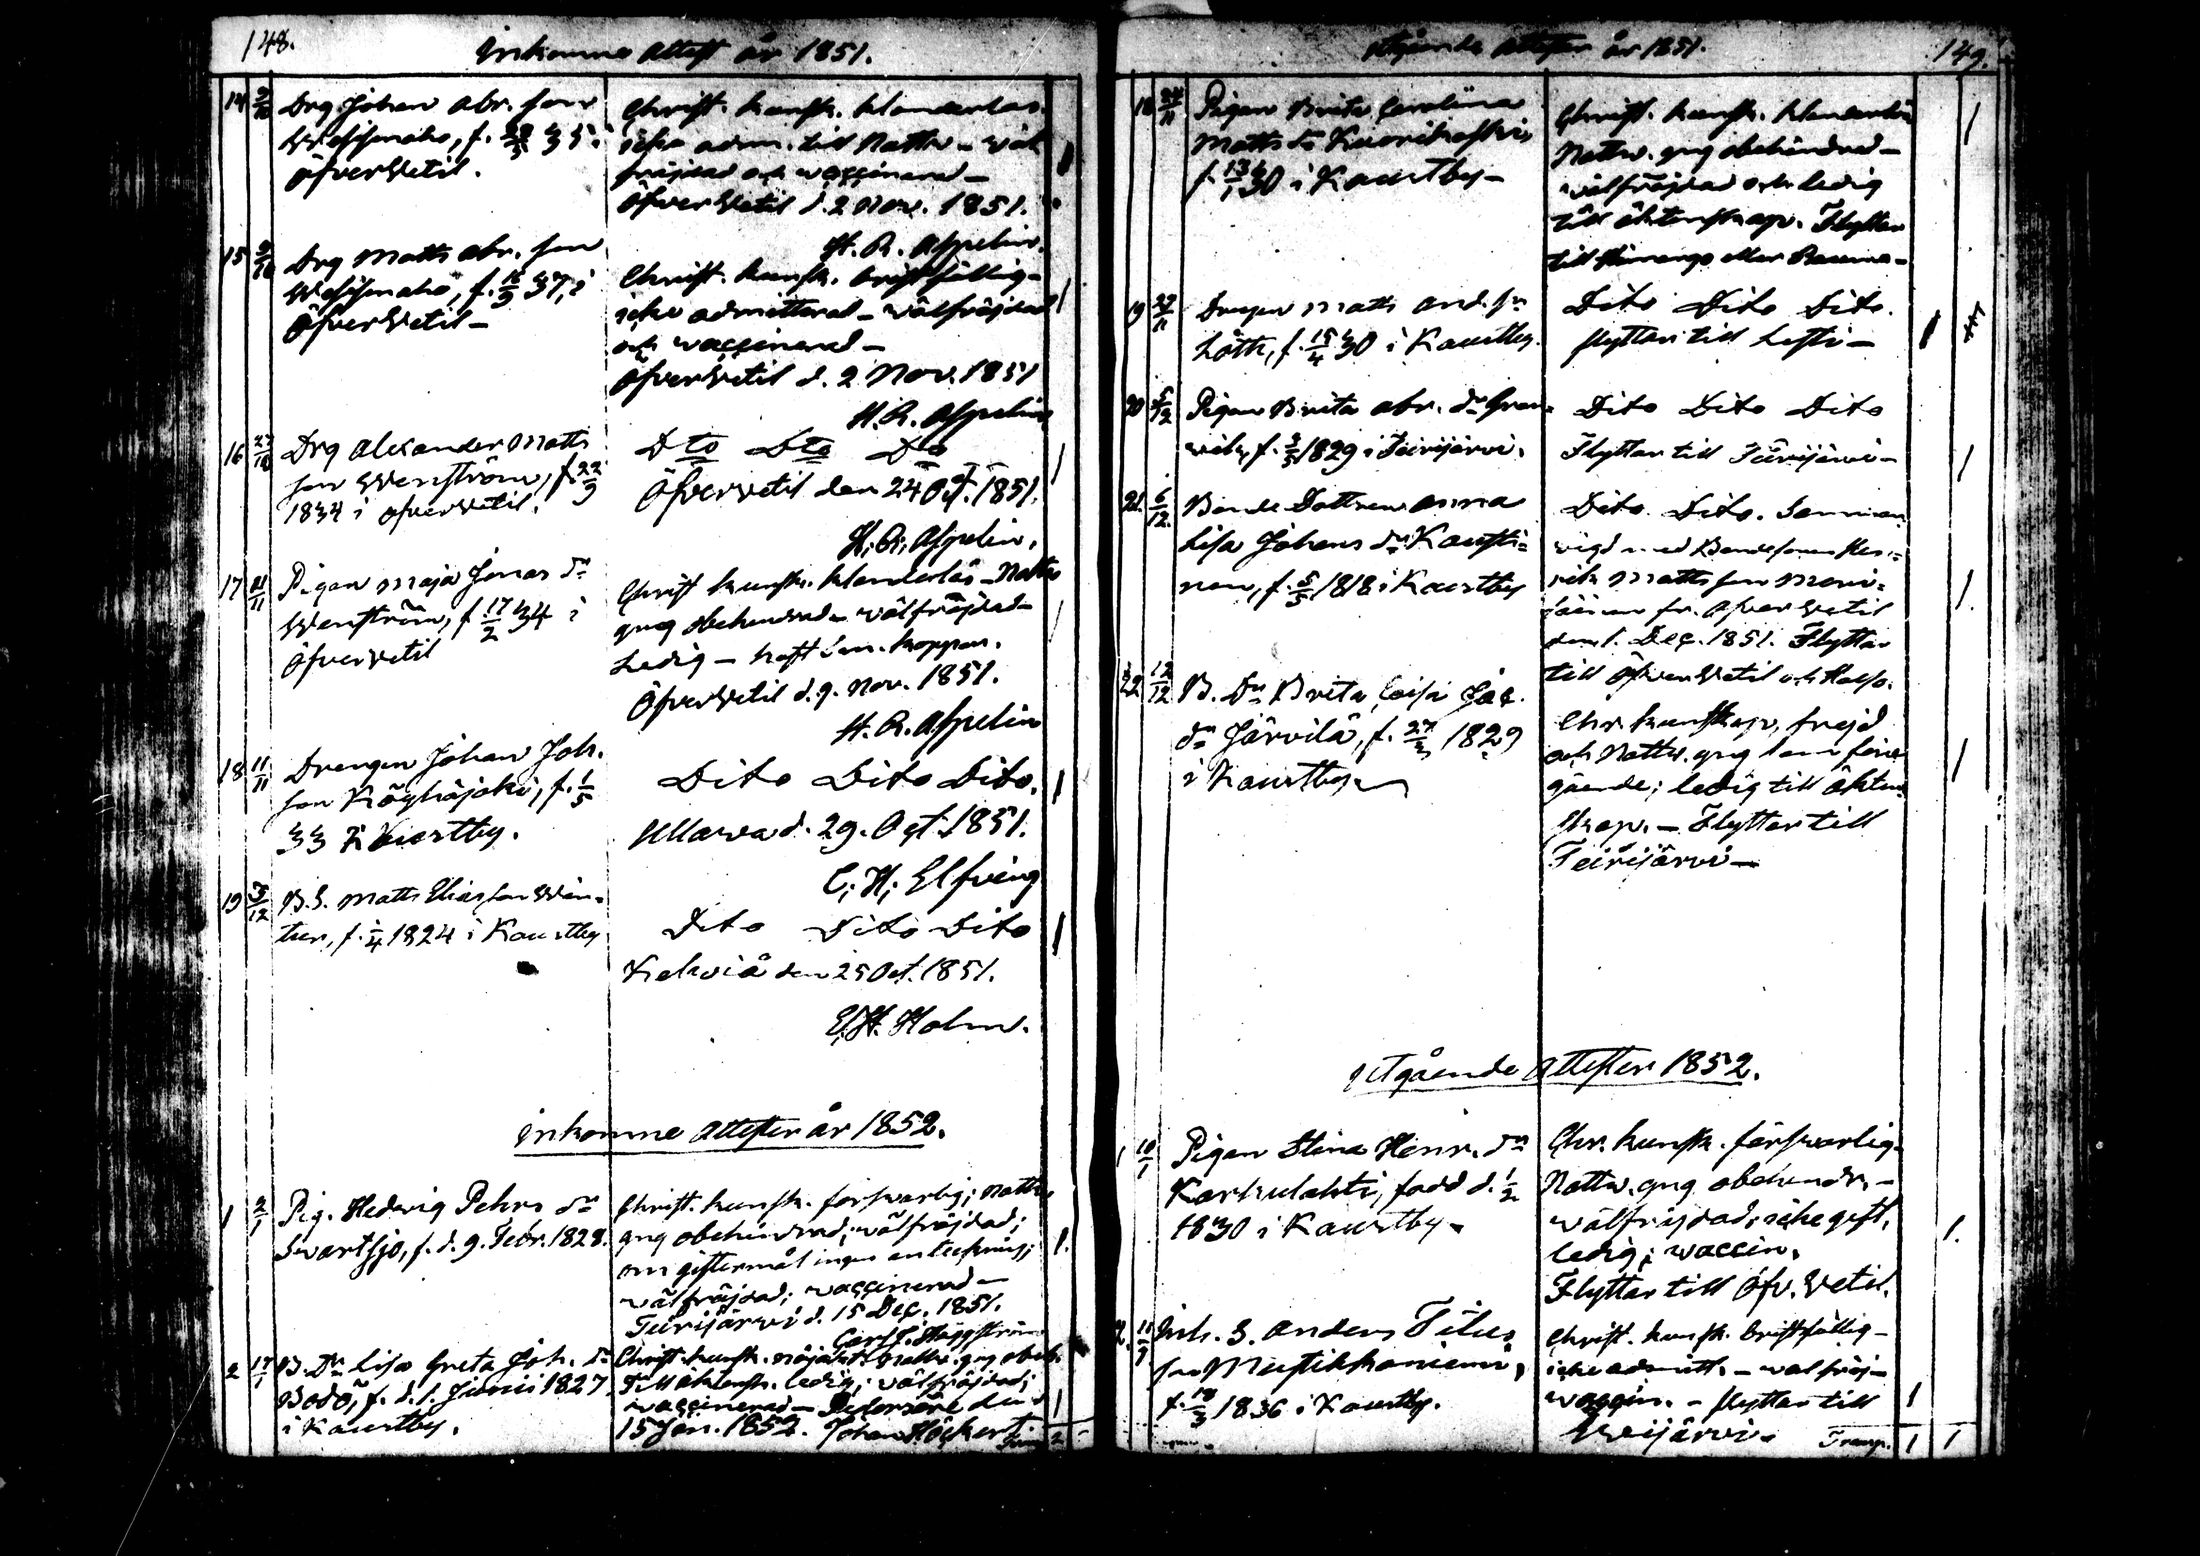 148.
Inkomne Attest år 1851.
14 2/10 Drg Johan Abr. son
f. 35 i
Öfvervetil.
Christ. kunsk. klanderlas.
icke adm. till Nattv. - väl
frejdad och vaccinerad -
Öfvervetil d. 2 Nov. 1851.
H. R. Aspelin.
15 Drg Matts Abr. son
f. 16/9 37, i
Öfvervetil -
Christ. kunsk. bristfällig -
icke admitterad - välfräjdad
och vaccinerad -
Öfvervetil d. 2 Nov. 1851
H. R. Aspelin
16 27/10 Drg Alexander Matts
son Wenström, f. 22/9
1834 i Öfvervetil.
Dto Dto Dto
Öfvervetil den 24 Oct. 1851.
H. R. Aspelin.
17 11/11 Pigan Maja Jonas dr
Wenström, f. 17/2 34 i
Öfvervetil
Christ kunsk. klanderlös - Nattv.
gng obehindrad - välfräjdad -
Ledig - haft koppor.
Öfvervetil d. 9. Nov. 1851.
H. R. Aspelin
18 11/11 Drengen Johan Joh.
son Köyhäjoki, f. 1/5
33 i Kaustby.
Dito Dito Dito.
Ullava d. 29. Oct. 1851.
C. H. Elfving
19 5/12 B. S. Matts Elias son Win-
ter, f. 1/4 1824 i Kaustby
Dito Dito Dito
Kelviå den 25 Oct. 1851.
E. H. Holm.
Inkomne Attester år 1852.
1 2/1 Pig. Hedvig Pehrs dr
Svartsjö, f. d. 9. Febr. 1828.
Christ. kunsk. försvarlig; Nattv.
gng obehindrad; välfräjdad;
om giftermål ingen anteckning;
välfräjdad; vaccinerad -
Terijärvi d. 15 Dec. 1851.
Carl J. Häggström
2 17/1 B. Dr Lisa Greta Joh. dr
Bodö, f. d. 1. Junii 1827
i Kaustby.
Christ. kunsk. nöjakt. Nattv. gng obeh.
Till äktensk. ledig; välfräjdad;
vaccinerad - Pedersöre den
15 Jan. 1852. Johan Höckert
2
149.
Utgående Attester år 1851.
18 24/11 Pigan Brita Carolina
Matts dr Kuorikoski
f. 13/1 30 i Kaustby -
Christ. kunsk. klanderlös
Nattv. gng obehindrad -
välfräjdad och ledig
till äktenskap. Flyttar
till eller
19 27/11 Drengen Matts And. sn
Lätti, f. 15/4 30 i Kaustby.
Dito Dito Dito.
flyttar till Lesti -
20 5/12 Pigan Brita Abr. dr Gran-
vik, f. 3/5 1829 i Terijärvi.
Dito Dito Dito
Flyttar till Terijärvi -
21. 6/12. Bonde Dottren Anna
Lisa Johans dr Kausti-
nen, f. 5/5 1818 i Kaustby
Dito Dito. Samman
vigd med Bondesonen Hen-
rik Mattsson
fr. Öfvervetil
den 1. Dec. 1851. Flyttar
till Öfvervetil och
22 12/12 B. Dr Brita Caisa Jac.
dr Järvilä, f. 27/3 1829
i Kaustby.
Chr. kunskap, frejd
och Nattv. gng som före-
gående; ledig till äkten-
skap. - Flyttar till
Terijärvi -
Utgående Attester 1852.
1 10/1 Pigan Stina Henr. dr
Karhulahti, född d. 1/2
1830 i Kaustby -
Chr. kunsk. försvarlig -
Nattv. gng obehindr. -
välfrejdad; icke gift,
ledig; vaccin.
Flyttar till Öfv. Vetil.
2. Inh. S. Anders Titus
son Mustikkaniemi,
f. 18/3 1836 i Kaustby.
Christ. kunsk. bristfällig -
icke admitt. - välfräj -
vaccin. - flyttar till
Transp. 1 1